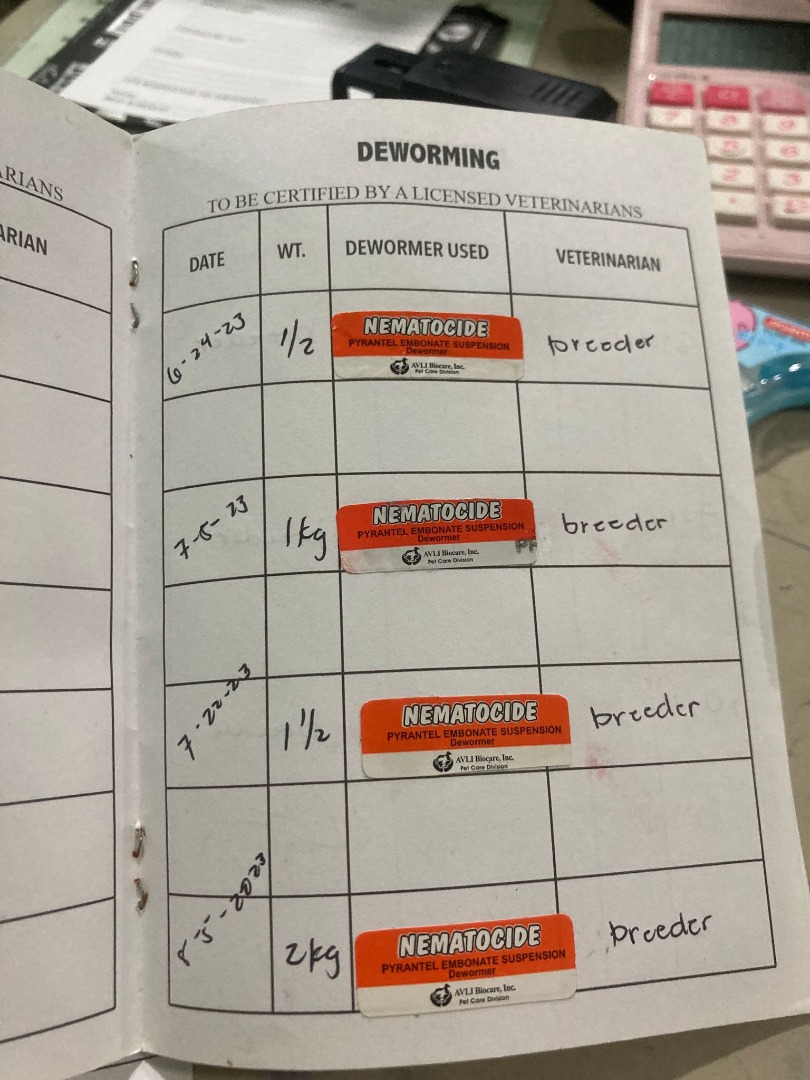 ARIANS
ARIAN
DEWORMING
TO BE CERTIFIED BY A LICENSED VETERINARIANS
DATE WT. DEWORMER USED VETERINARIAN
6-24-23 1/2 NEMATOCIDE breeder
PYRANTEL EMBONATE SUSPENSION
Dewormer
AVLI Biocare, Inc.
Pet Care Division
7-5-23 1kg NEMATOCIDE breeder
PYRANTEL EMBONATE SUSPENSION
Dewormer
AVLI Biocare, Inc.
Pet Care Division
7-22-23 1 1/2 NEMATOCIDE breeder
PYRANTEL EMBONATE SUSPENSION
Dewormer
AVLI Biocare, Inc.
Pet Care Division
8-5-2023 2kg NEMATOCIDE breeder
PYRANTEL EMBONATE SUSPENSION
Dewormer
AVLI Biocare, Inc.
Pet Care Division